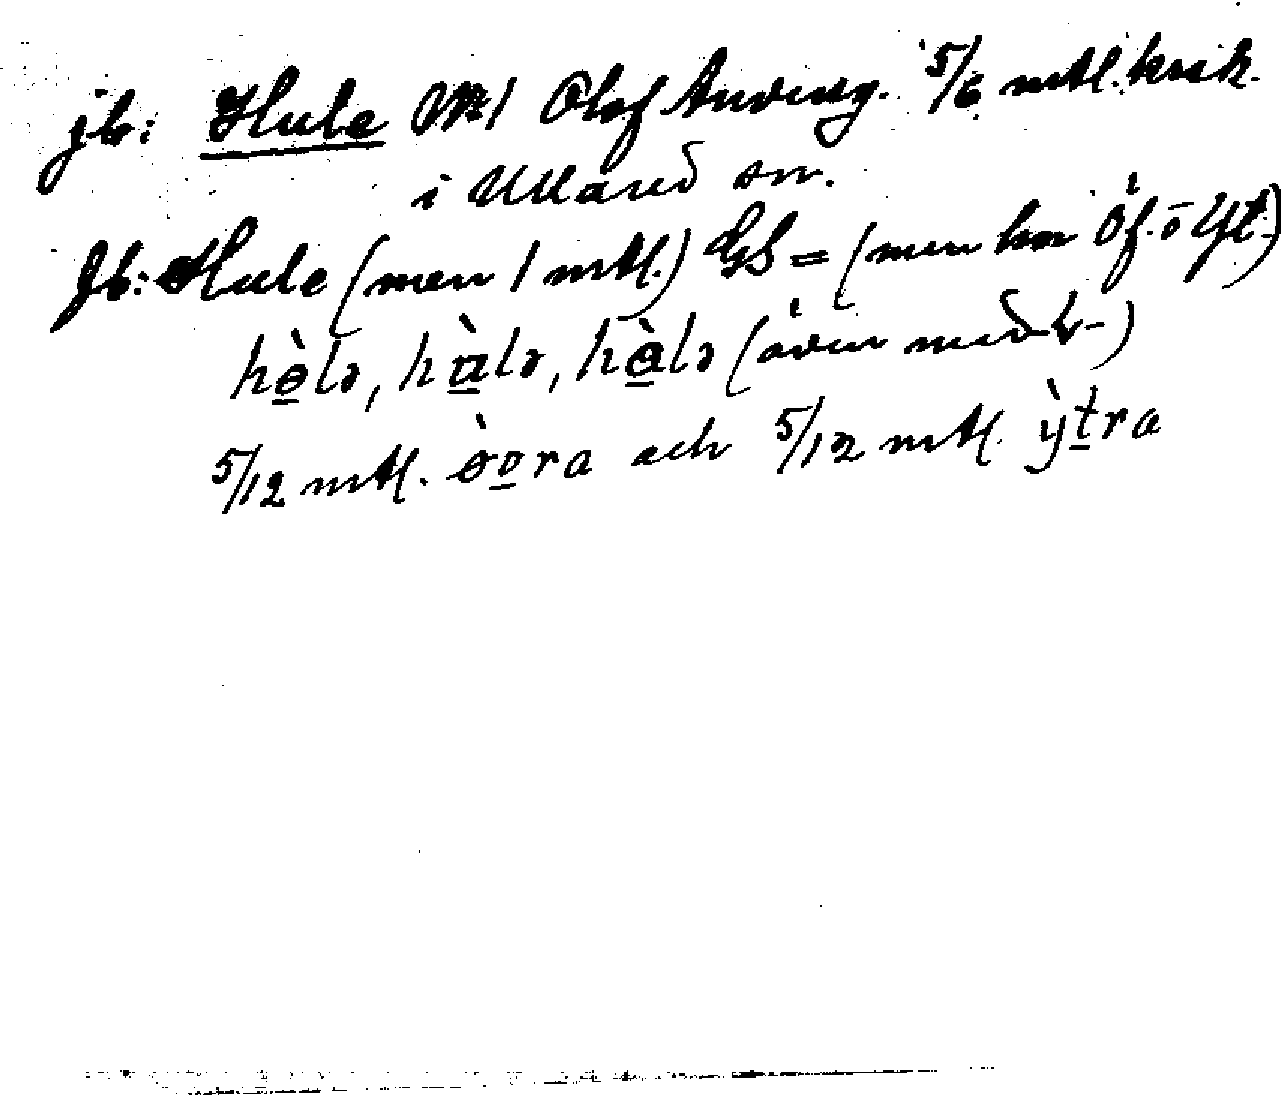 jb: Hule № 1 Olof Andersg. 5/6 mtl. krsk.
i Ullared sn.
Jb: Hule (men 1 mtl.) GS = (men har Öf. o Yt.)
hө̀lə, hὰlə, hàlə (även med k-)
5/12 mtl. ө̀vra och 5/12 mtl. ỳtra